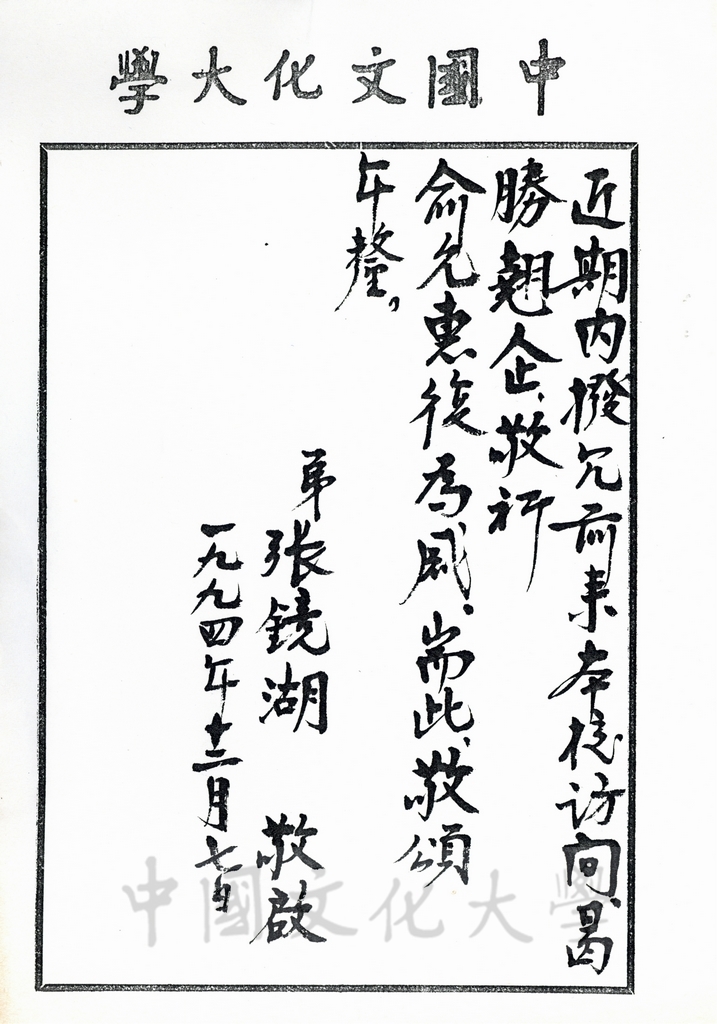 中國文化大學
近期內撥冗前来本校訪问、曷
勝翹企、敬祈
俞允惠復為感、耑此、敬頌
年釐，
弟張鏡湖 敬啟
一九九四年十二月七日
中國文化大學